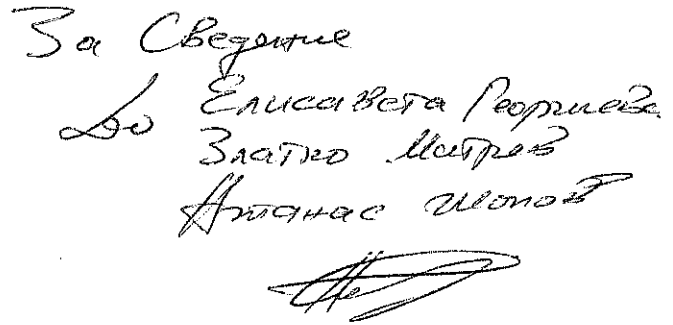 За Сведение
До Елисавета Георгиева
Златко Митрев
Атанас Шопов